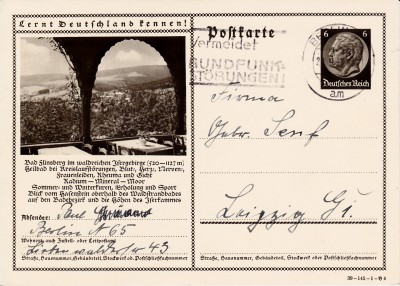 Lernt Deutschland kennen!
Postkarte
Vermeidet
RUNDFUNK-
STÖRUNGEN!
6 6
Deutsches Reich
am
Firma
Gebr. Senf
Leipzig C1.
Bad Flinsberg im waldreichen Isergebirge (520–1127 m)
Heilbad bei Kreislaufstörungen, Blut-, Herz-, Nerven-,
Frauenleiden, Rheuma und Gicht
Radium – Mineral – Moor
Sommer- und Winterkuren, Erholung und Sport
Blick vom Hasenstein oberhalb des Waldstrandbades
auf den Badebezirk und die Höhen des Iserkammes
Absender: Paul
Berlin N 65
Wohnort, auch Zustell- oder Leitpostamt
43
Straße, Hausnummer, Gebäudeteil, Stockwerk oder Postschließfachnummer
Straße, Hausnummer, Gebäudeteil, Stockwerk oder Postschließfachnummer